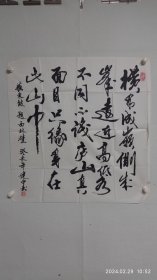 横看成嶺側成
峯远近高低各
不同不识庐山真
面目只缘身在
此山中
题西林壁
2024.03.29 10:52